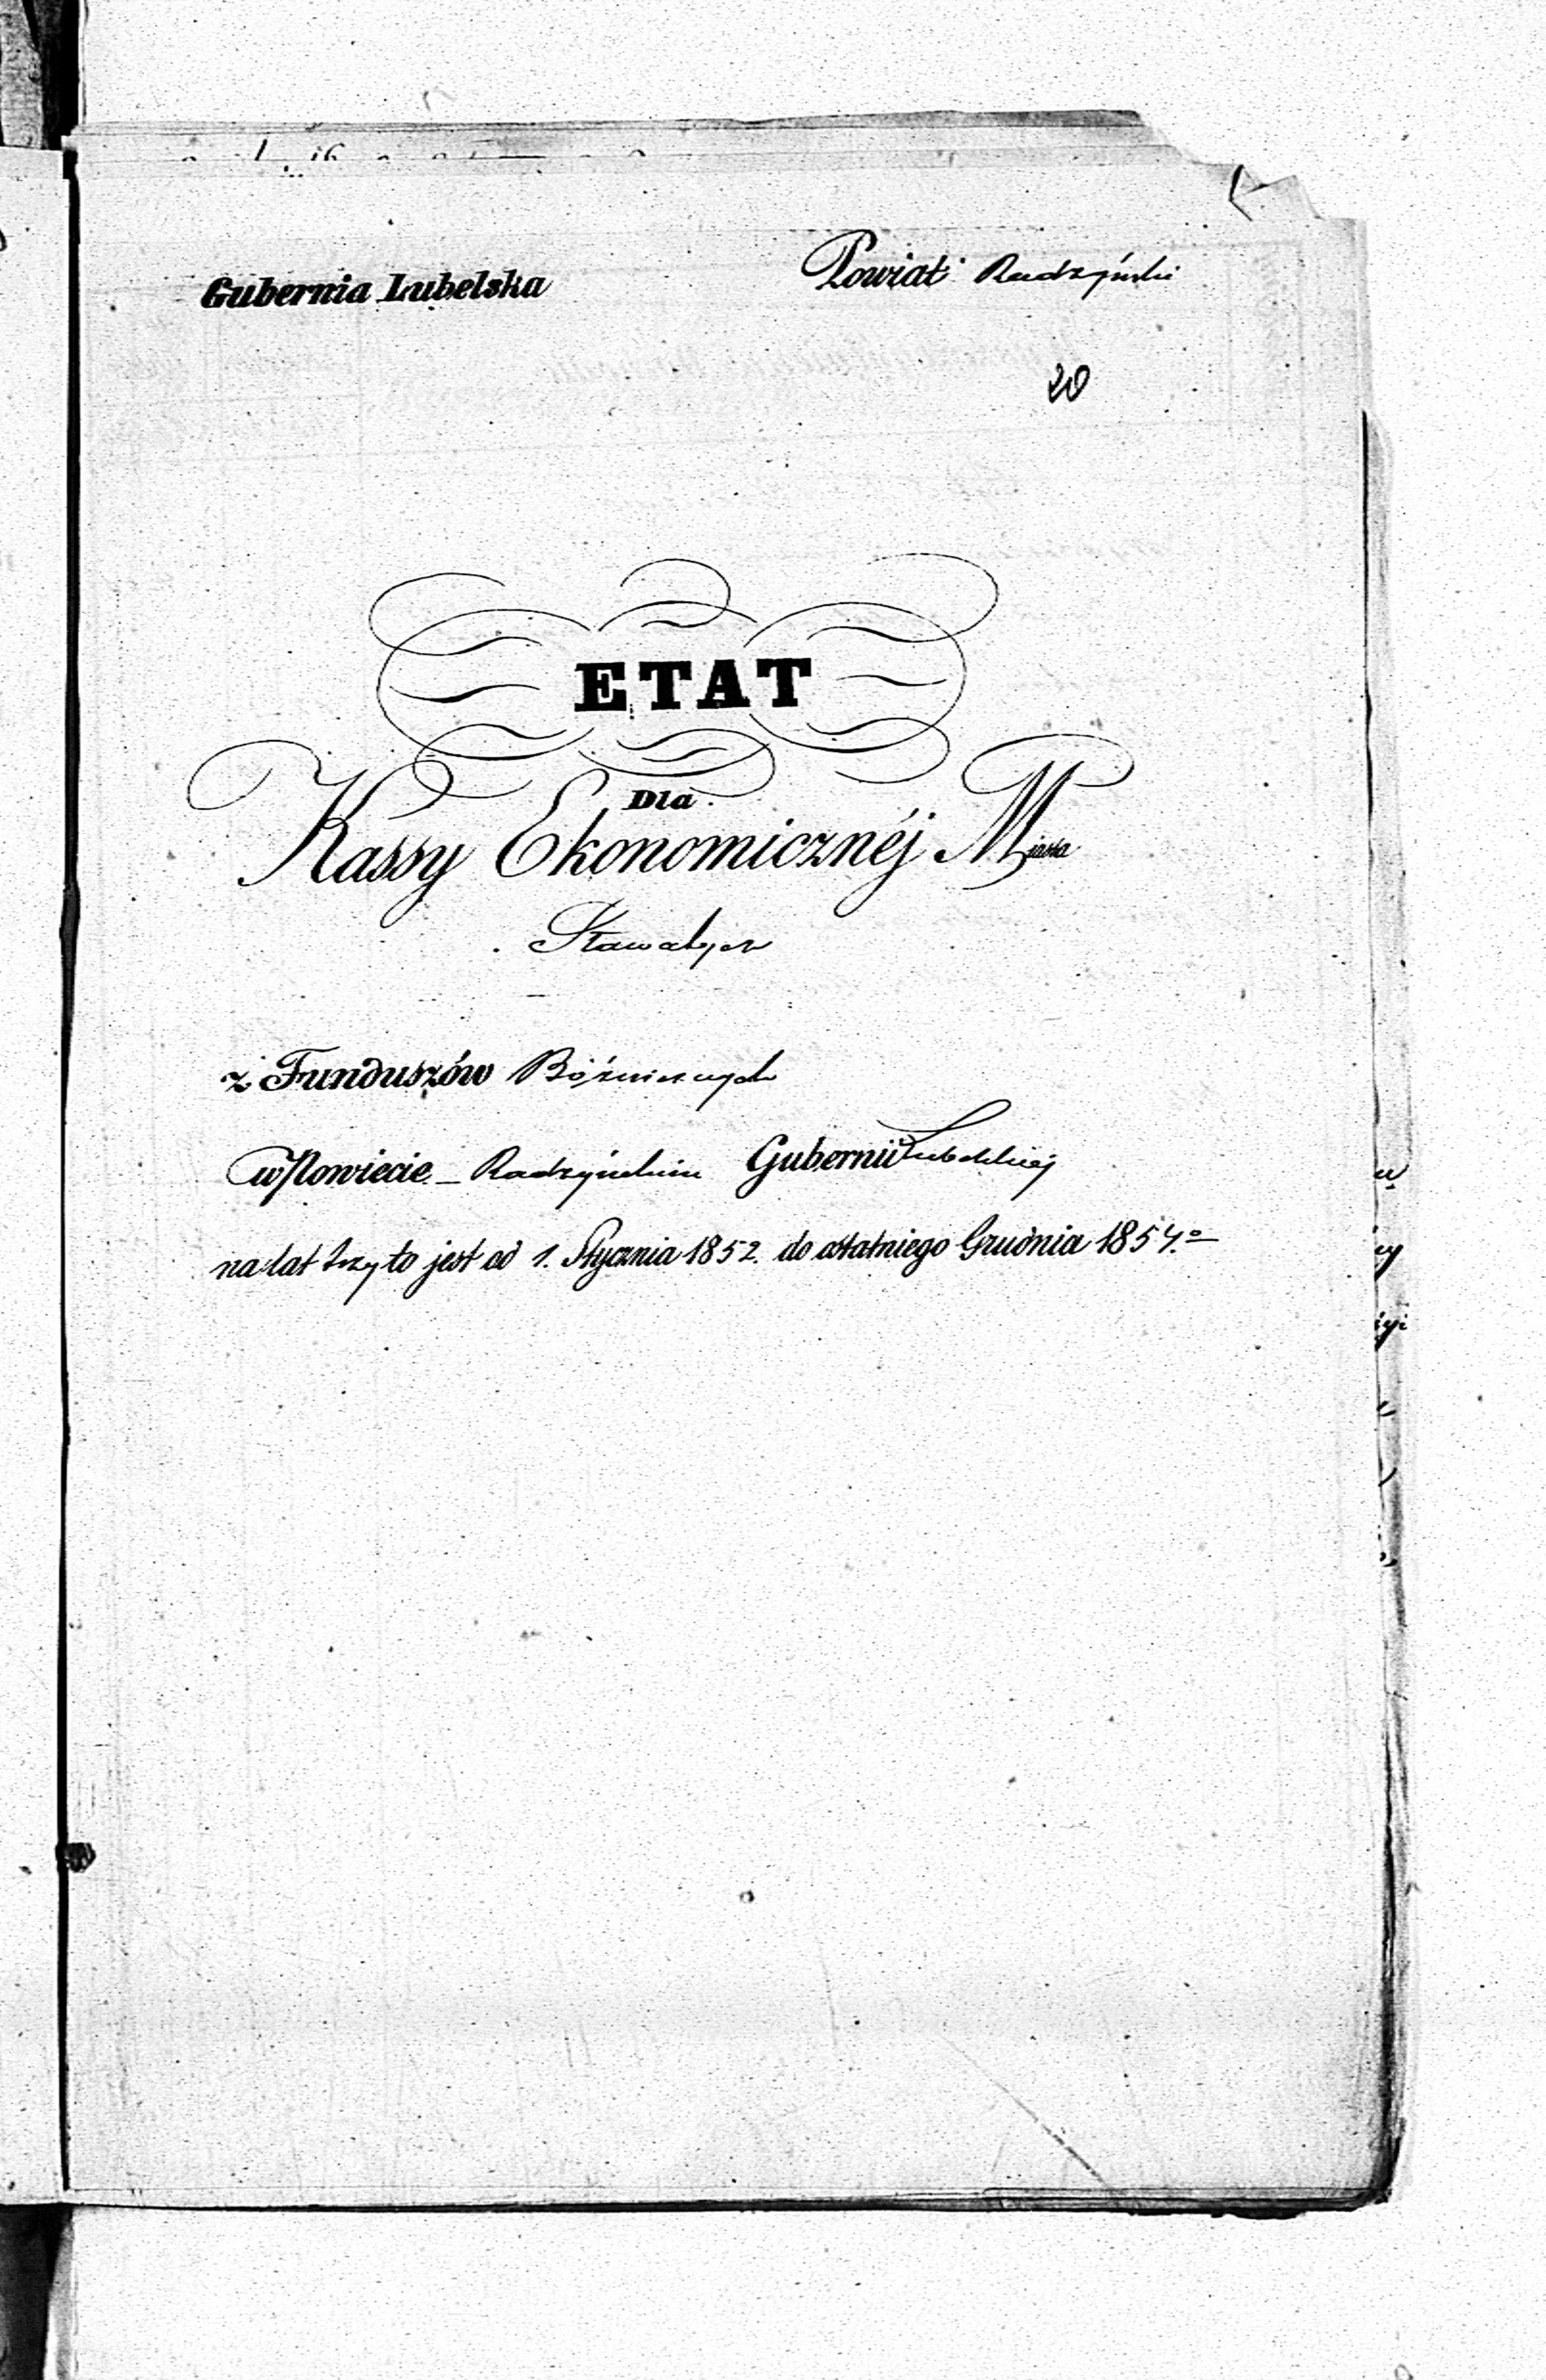 Gubernia Lubelska
Powiat Radzyński
20
ETAT
Dla
Kassy Ekonomicznéj Miasta
Sławatycz
z Funduszów Bóżniczych
w Powiecie Radzyńskim Gubernii Lubelskiej
na lat trzy to jest od 1. Stycznia 1852. do ostatniego Grudnia 1854.